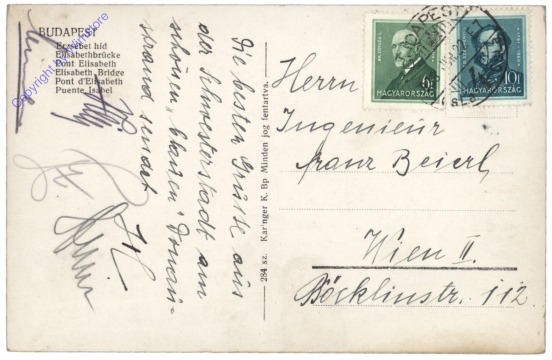 BUDAPEST
Erzsébet híd
Elisabethbrücke
Pont Elisabeth
Elisabeth Bridge
Pont d'Elisabeth
Puente Isabel
Die besten Grüsse aus
der Schwesterstadt am
schönen, blauen" Donau-
strand sendet
284 sz. Karinger K. Bp Minden jog fentartva.
6f
MAGYARORSZÁG
10f
MAGYARORSZÁG
BUDAPEST
Herrn
Ingenieur
Franz Beierl
Wien II.
Böcklinstr. 112.
Copyright by